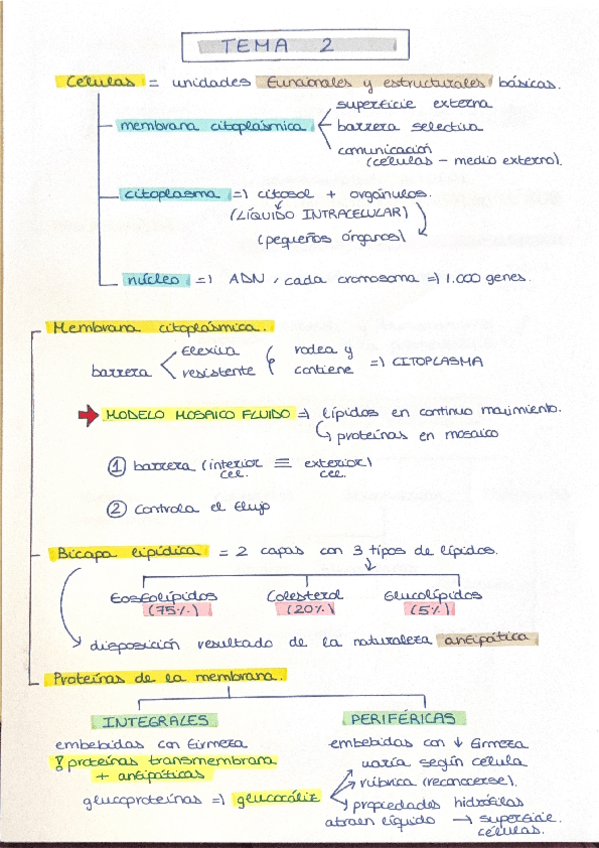 TEMA 2
Células = unidades funcionales y estructurales básicas.
membrana citoplásmica
superficie externa
barrera selectiva
comunicación
(células - medio externo).
citoplasma => citosol + orgánulos.
(LÍQUIDO INTRACELULAR)
(pequeños órganos)
núcleo => ADN, cada cromosoma => 1.000 genes.
Membrana citoplásmica.
barrera
flexible
resistente
rodea y
contiene => CITOPLASMA
MODELO MOSAICO FLUIDO => lípidos en continuo movimiento.
proteínas en mosaico
① barrera (interior cel. ≡ exterior cel.)
② controla el flujo
Bicapa lipídica = 2 capas con 3 tipos de lípidos.
Fosfolípidos Colesterol Glucolípidos
(75%) (20%) (5%)
disposición resultado de la naturaleza anfipática
Proteínas de la membrana.
INTEGRALES
embebidas con firmeza
proteínas transmembrana
+ anfipáticas
glucoproteínas => glucocáliz
PERIFÉRICAS
embebidas con ↓ firmeza
varía según célula
rúbrica (reconocerse).
propiedades hidrófilas
atraen líquido → superficie.
células.